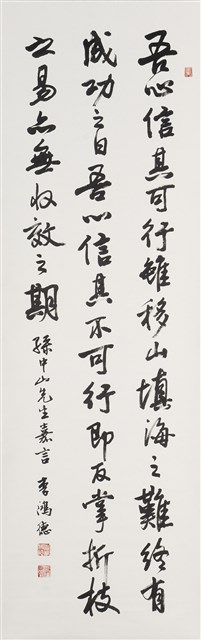 吾心信其可行雖移山填海之難終有
成功之日吾心信其不可行即反掌折枝
之易亦無收效之期
孫中山先生嘉言 李鴻德